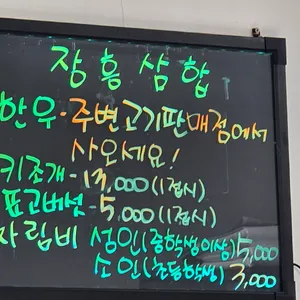 장흥삼합
한우-주변고기판매점에서
사오세요!
키조개-13,000(1접시)
표고버섯-5,000(1접시)
자림비 성인(중학생이상)5,000
소인(초등학생) 3,000